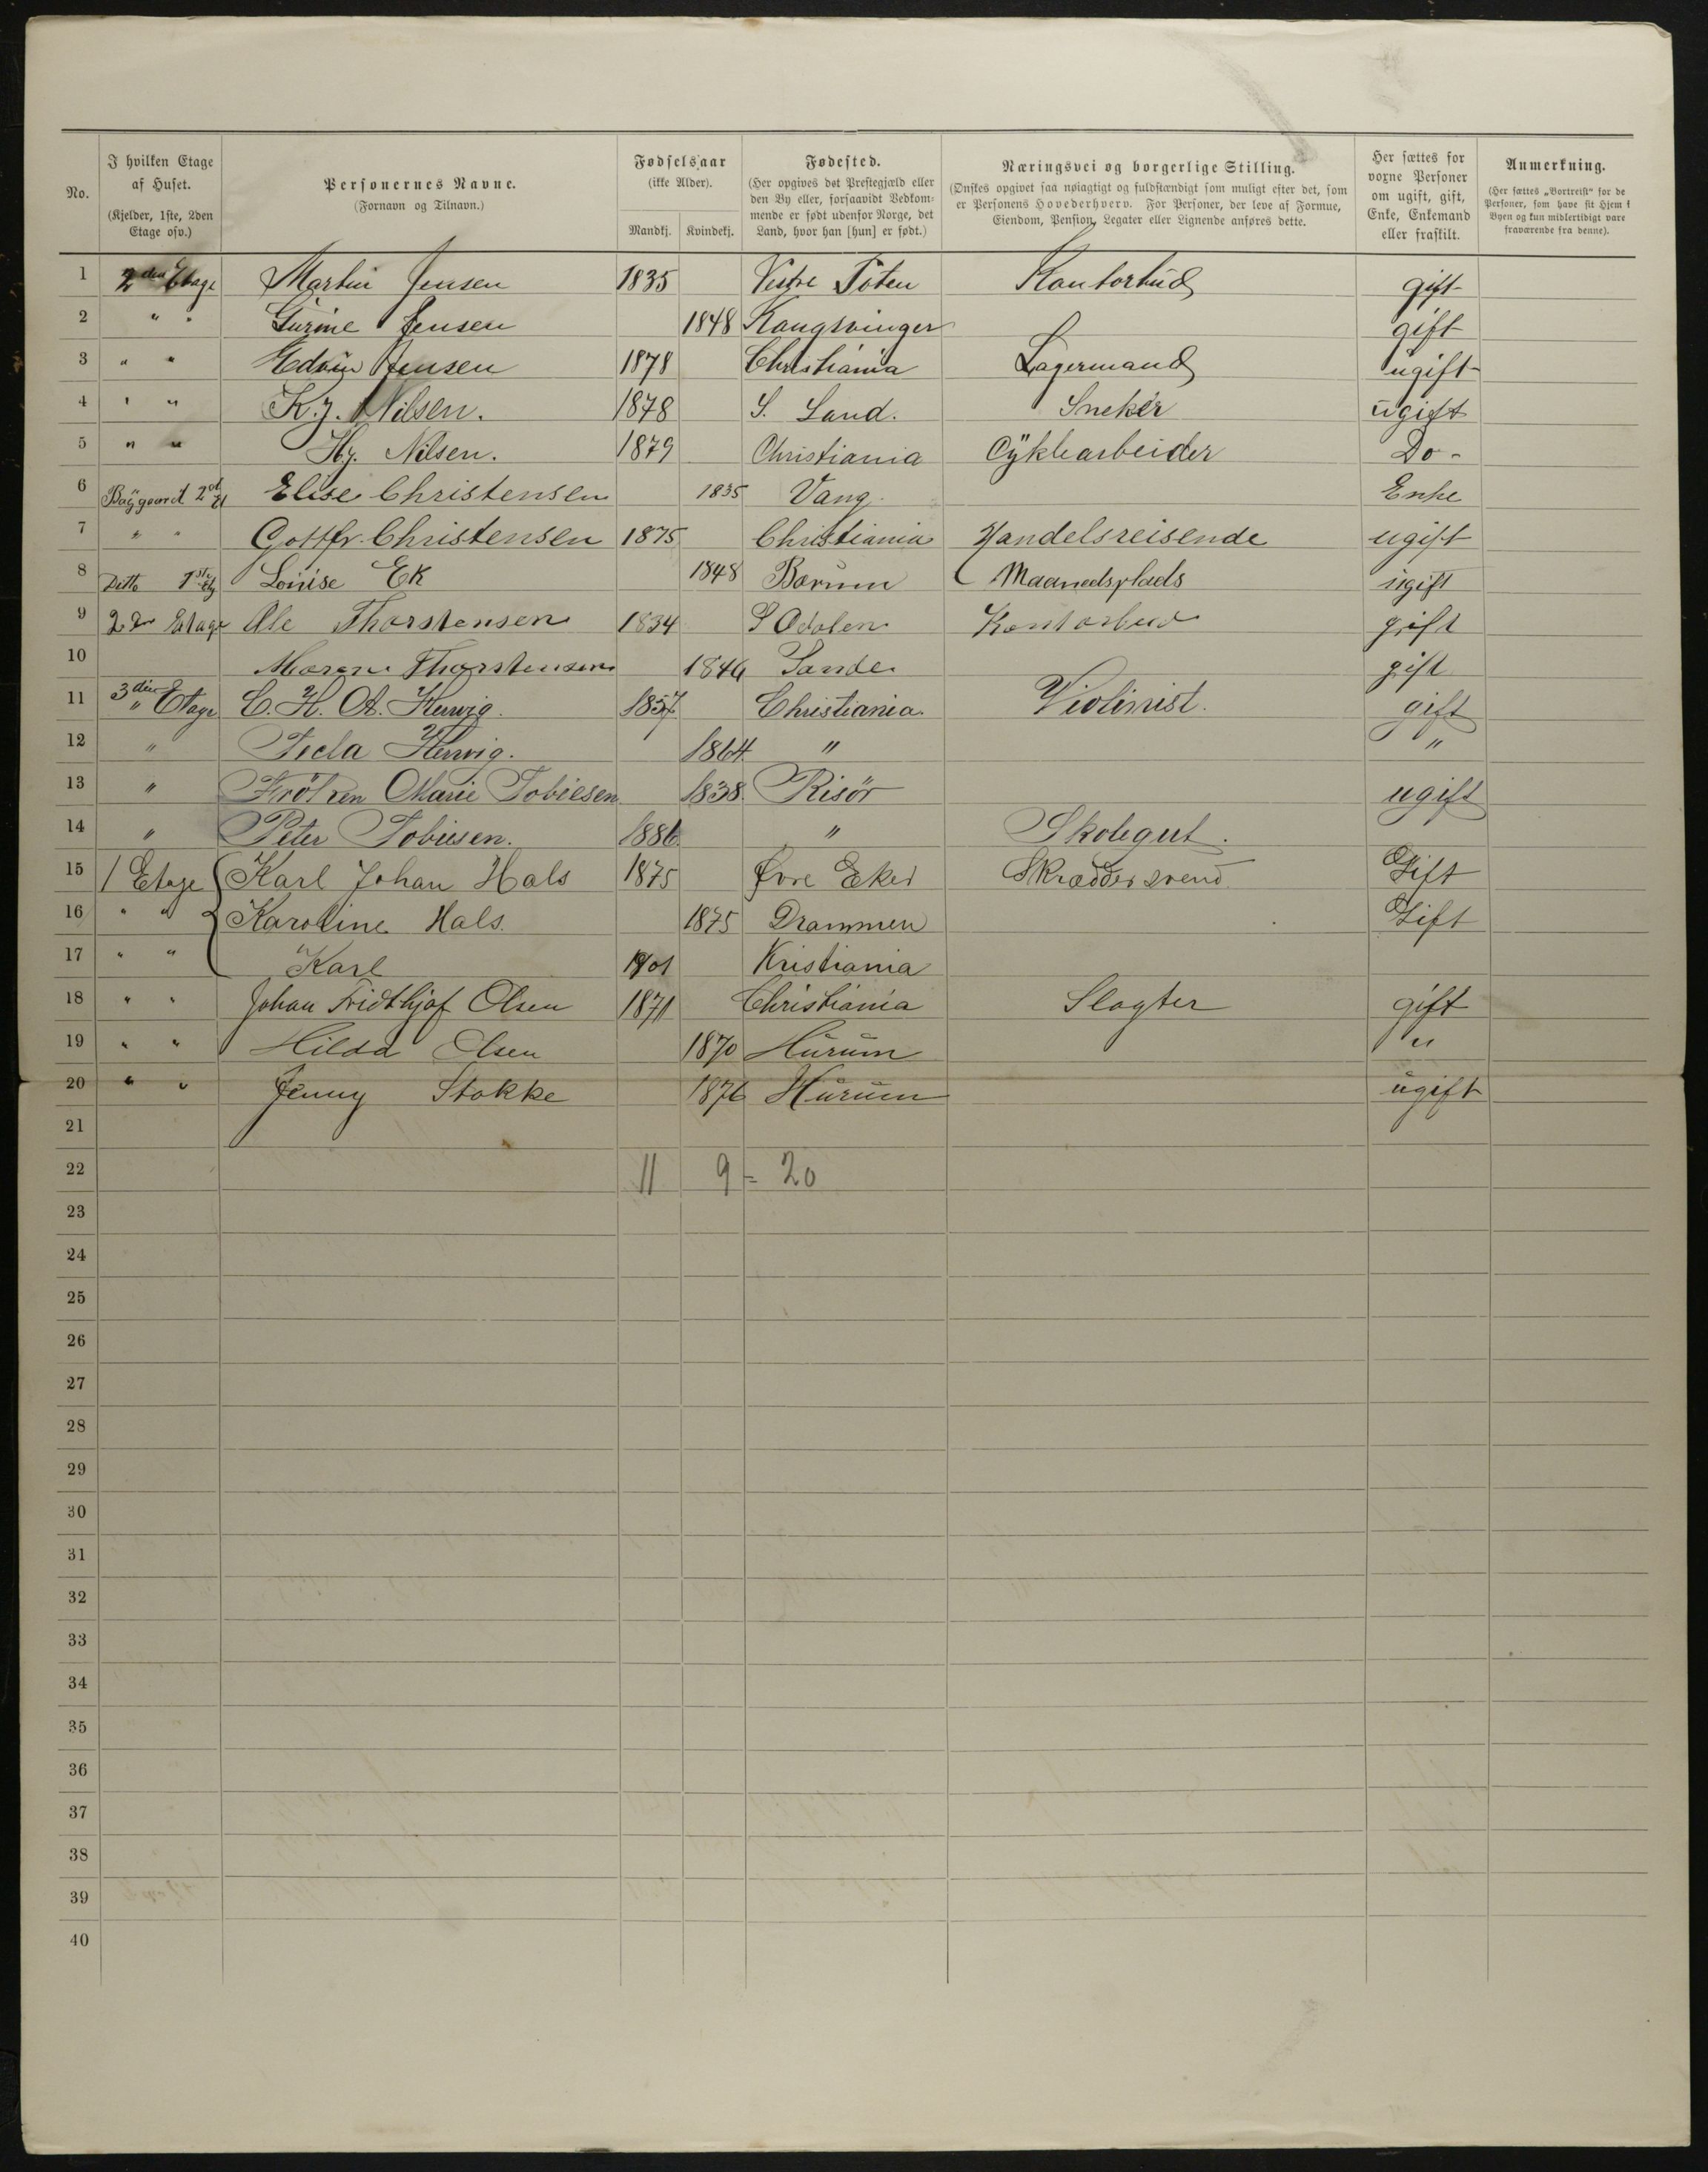 No.
I hvilken Etage af Huset.
(Kjelder, 1ste, 2den Etage osv.)
Personernes Navne.
(Fornavn og Tilnavn.)
Fødselsaar
(ikke Alder).
Mandkj.
Kvindekj.
Fødested.
(Her opgives det Prestegjæld eller den By eller, forsaavidt Vedkommende er født udenfor Norge, det Land, hvor han [hun] er født.)
Næringsvei og borgerlige Stilling.
(Ønskes opgivet saa nøiagtigt og fuldstændigt som muligt efter det, som er Personens Hovederhverv. For Personer, der leve af Formue, Eiendom, Pension, Legater eller Lignende anføres dette.
Her sættes for voxne Personer om ugift, gift, Enke, Enkemand eller fraskilt.
Anmerkning.
(Her sættes „Bortreist“ for de Personer, som have sit Hjem i Byen og kun midlertidigt vare fraværende fra denne).
1 2den Etage Martin Jensen 1835 Vestre Toten Kontorbud gift
2 " " Gurine Jensen 1848 Kongsvinger gift
3 " " Edvin Jensen 1878 Christiania Lagermand ugift
4 " " K.J. Nilsen. 1878 S. Land. Sneker ugift
5 " " Hj. Nilsen. 1879 Christiania Cyklearbeider Do-
6 Baggaard 2d Et Elise Christensen 1835 Vang Enke
7 " " Gottfr. Christensen 1875 Christiania Handelsreisende ugift
8 Ditto 1ste Etg Louise Ek 1848 Barum Maanedsplads ugift
9 2den Etage Ole Thorstensen 1834 S Odalen Kontorbud gift
10 Maren Thorstensen 1846 Sande gift
11 3die Etage C. H. A. Herwig. 1857 Christiania Violinist. gift
12 " Tecla Herwig. 1864 " "
13 " Frøken Marie Tobiesen 1838. Risör ugift
14 " Peter Tobiesen. 1886 " Skolegut.
15 1 Etage Karl Johan Hals 1875 Øvre Eker Skræddersvend Gift
16 " " Karoline Hals. 1875 Drammen Gift
17 " " Karl 1901 Kristiania
18 " " Johan Fridthjof Olsen 1871 Christiania Slagter gift
19 " " Hilda Olsen 1870 Hurum "
20 " " Jenny Stokke 1876 Hurum ugift
21
22 11 9 = 20
23
24
25
26
27
28
29
30
31
32
33
34
35
36
37
38
39
40